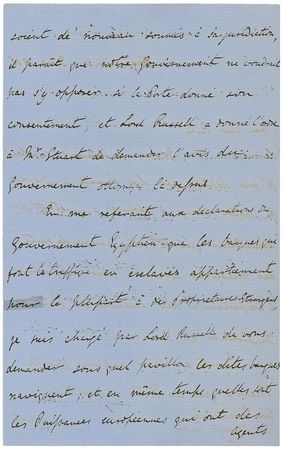 soient de nouveau soumis à sa juridiction,
il paraît que notre Gouvernement ne voudrait
pas s'y opposer si la Porte donne son
consentement; et Lord Russell a donné l'ordre
à Mr Stuart de demander l'avis du
Gouvernement Ottoman là dessus.
En me referant aux declarations du
Gouvernement Egyptien que les barques qui
font le traffique en esclaves appartiennent
pour la plupart à des Proprietaires Etrangers,
je suis chargé par Lord Russell de vous
demander sous quel pavillon les dites barques
naviguent; et en même temps quelles sont
les Puissances européennes qui ont des
Agents